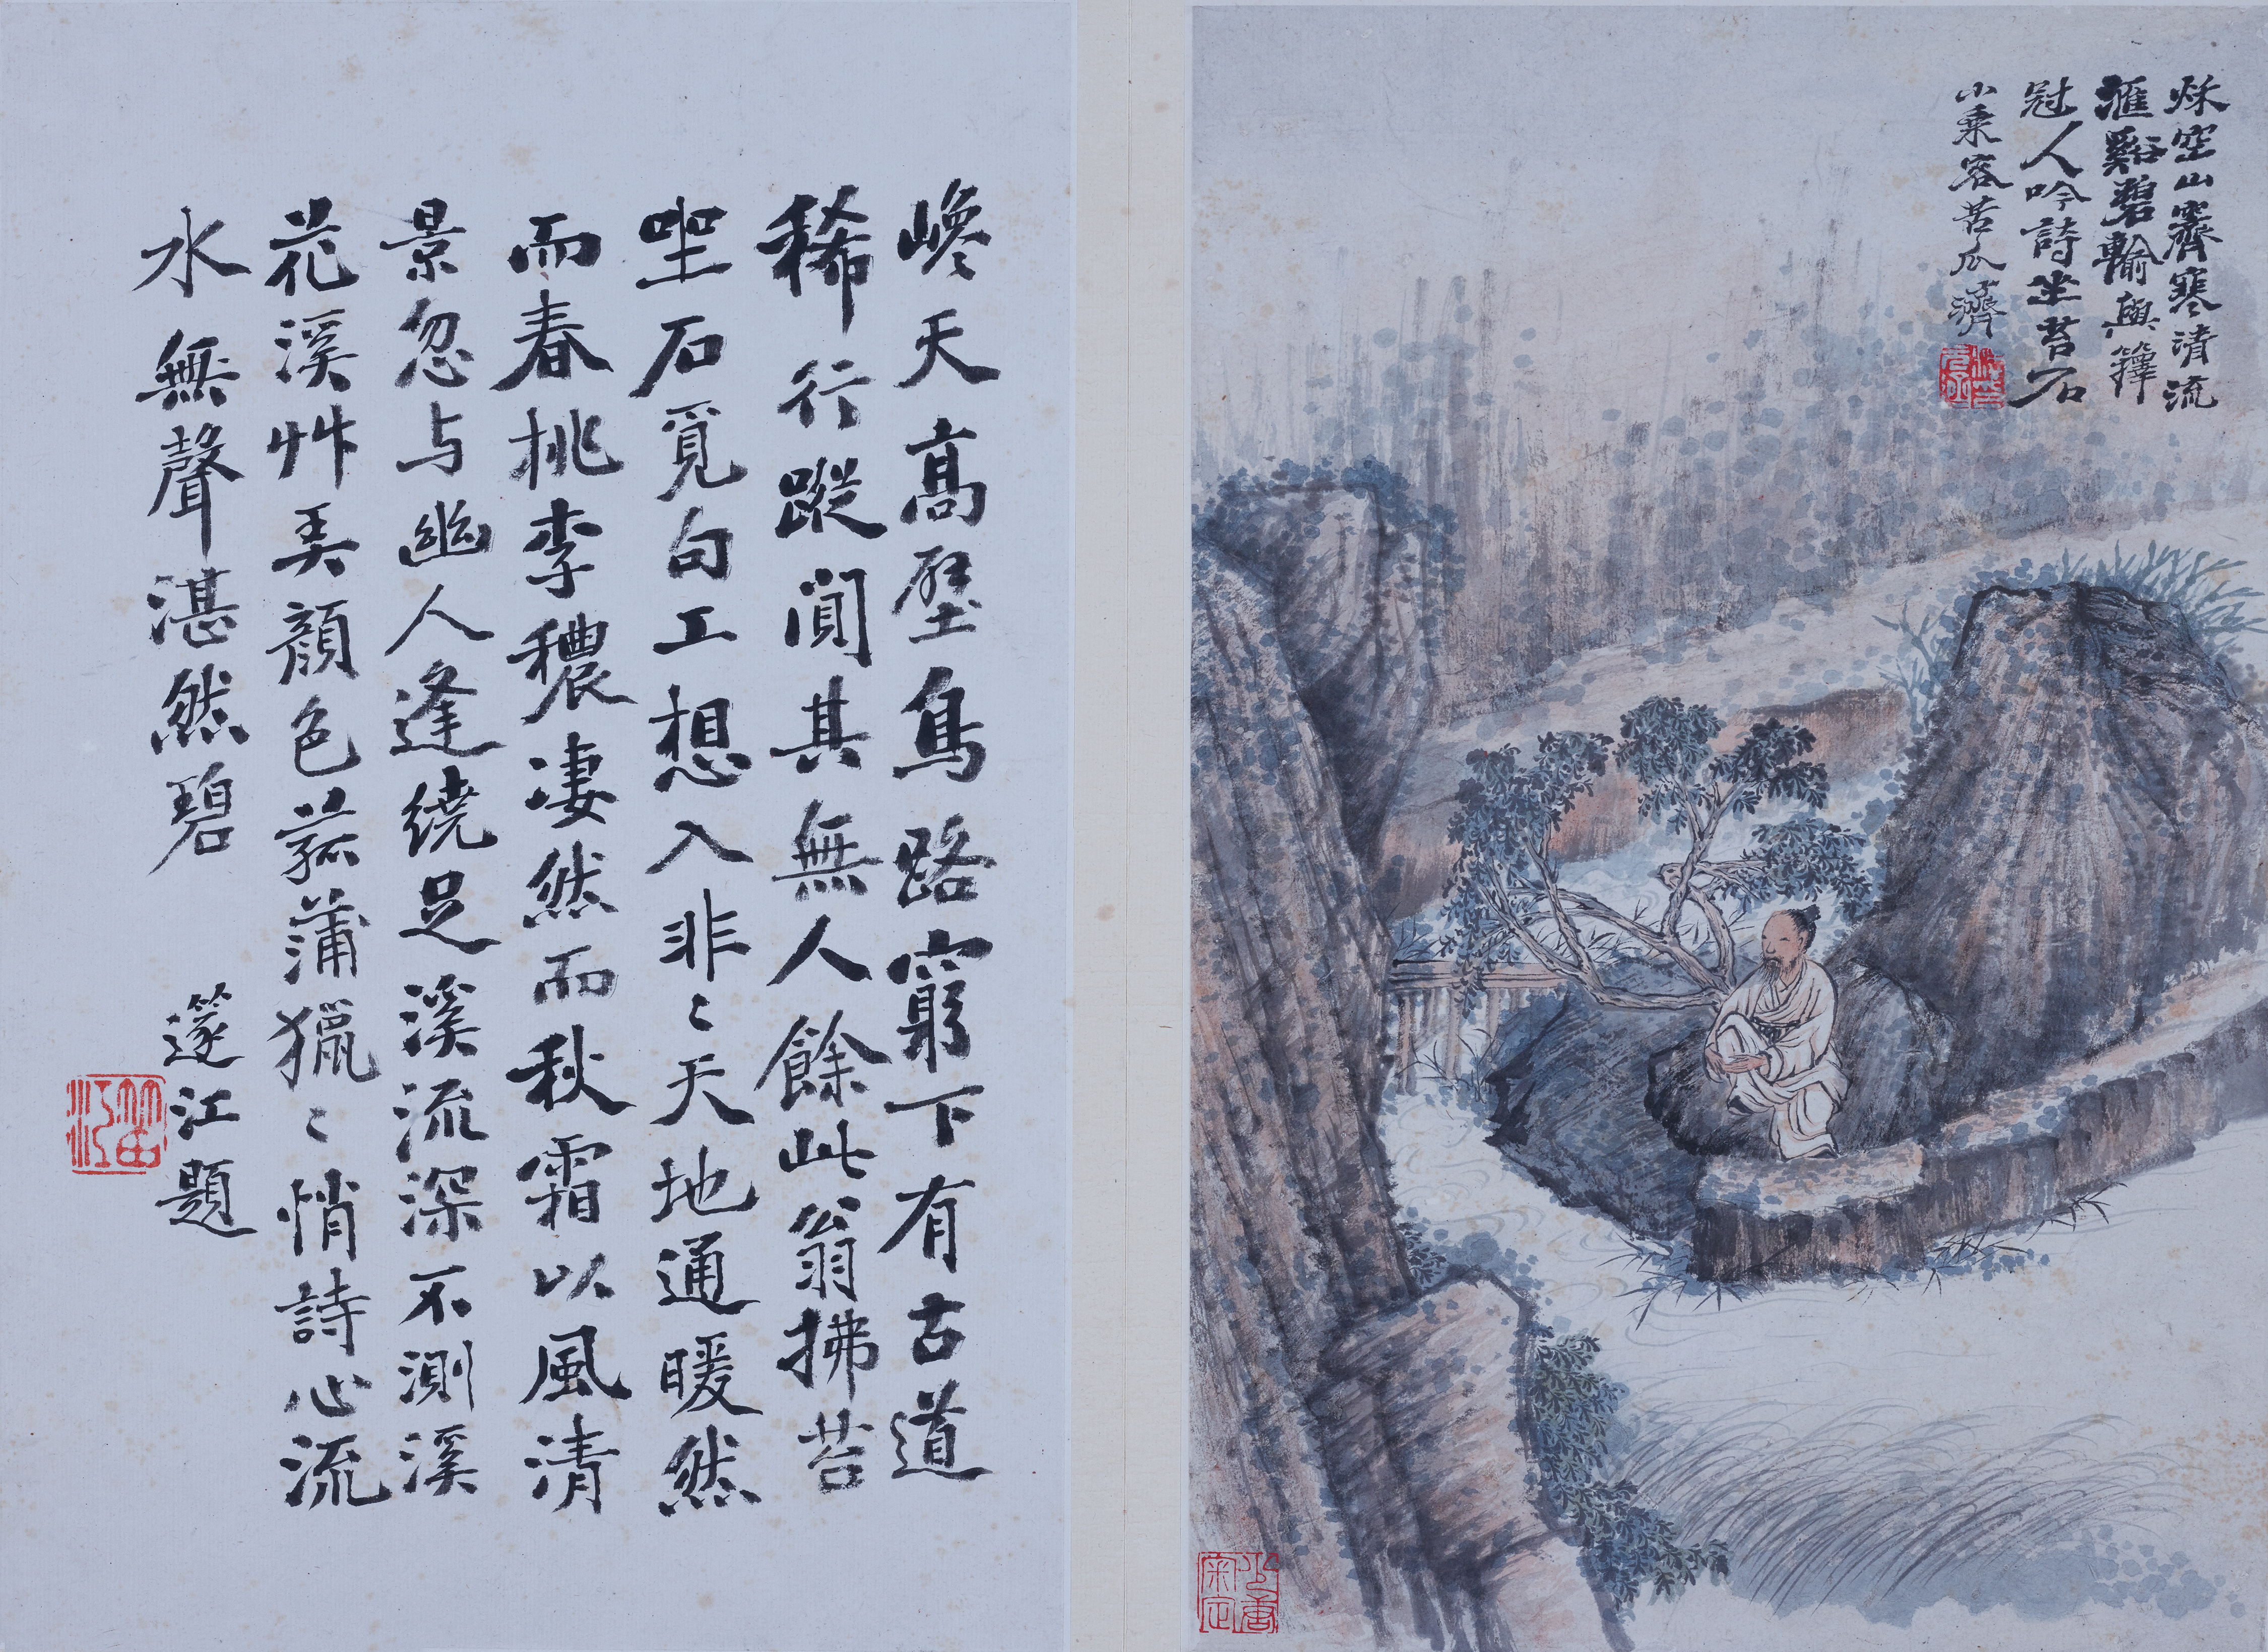 秌空山霽寒清流
匯谿碧輸與籜
冠人吟詩坐苔石
小乘客苦瓜濟
巉天高壁鳥路窮下有古道
稀行蹤闃其無人餘此翁拂苔
坐石覓句工想入非〻天地通暖然
而春桃李穠凄然而秋霜以風清
景忽与幽人逢繞足溪流深不測溪
花溪艸弄顏色菰蒲獵〻悄詩心流
水無聲湛然碧
篴江題
笛江